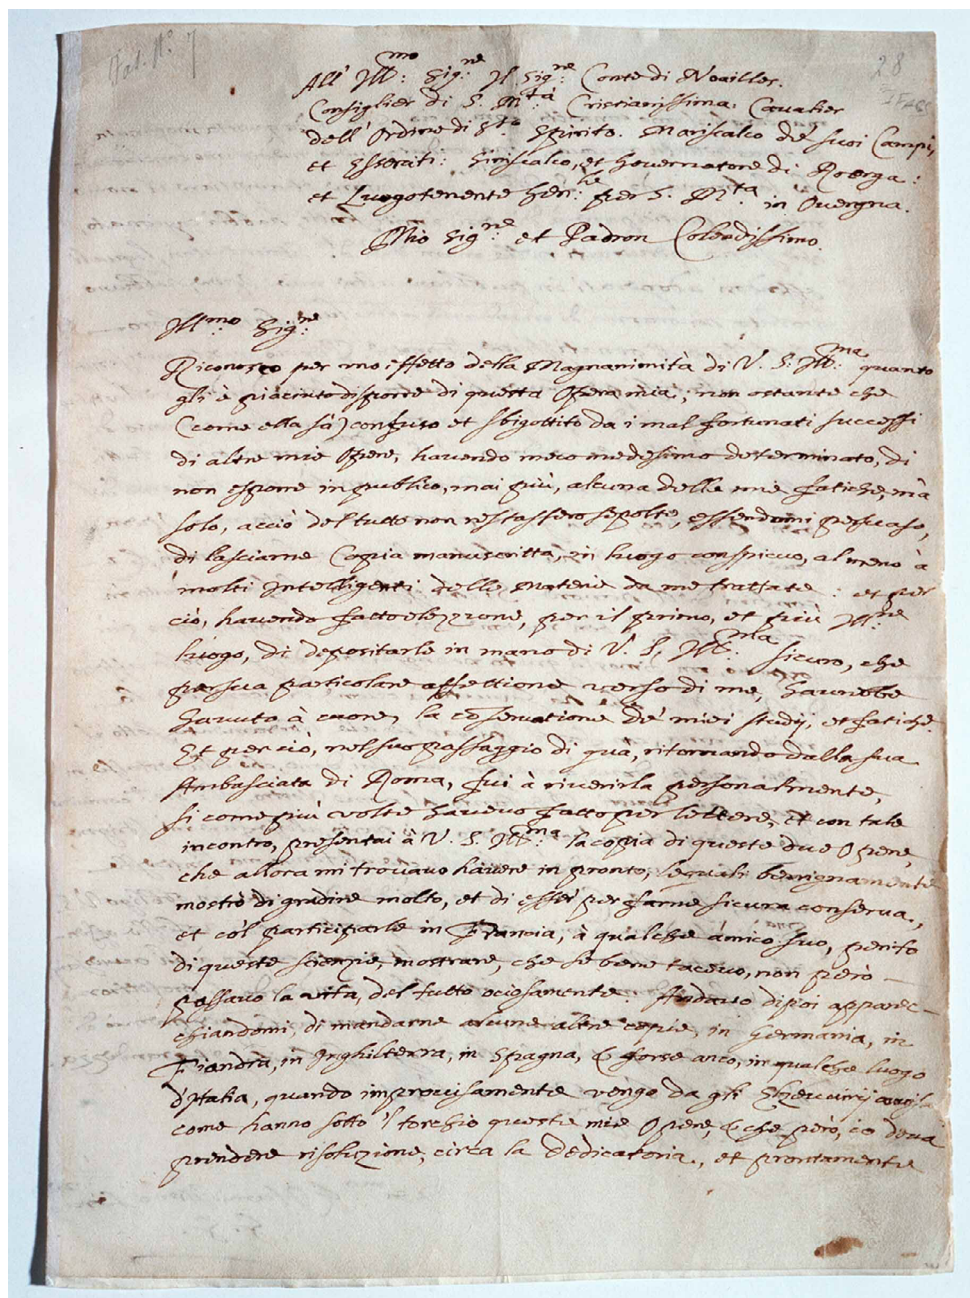 Nat. N.° 7
28
All' Ill.mo Sig.re Il Sig.re Conte di Noailles.
Consiglier di S. M.tà Cristianissima. Cavalier
dell' Ordine di S.to Spirito. Mariscalco de' suoi Campi,
et Esserciti: Siniscalco, et Governatore di Roerga:
et Luogotenente Gen.le per S. M.tà in Overgna.
Mio Sig.re et Padron Colendissimo.
Ill.mo Sig.re
Riconosco per uno effetto della Magnanimità di V. S. Ill.ma quanto
gli è piaciuto disporre di questa Opera mia, non ostante che
(come ella sà) confuso et sbigottito da i mal fortunati successi
di altre mie Opere, havendo meco medesimo determinato, di
non esporre in publico, mai più, alcuna delle mie fatiche, mà
solo, acciò del tutto non restassero sepolte, essendomi persuaso,
di lasciarne Copia manuscritta, in luogo conspicuo, almeno à
molti Intelligenti delle Materie da me trattate: et per
ciò, havendo fatto elezzione, per il primo, et più Ill.re
luogo, di depositarle in mano di V. S. Ill.ma sicuro, che
per sua particolare affettione verso di me, havrebbe
havuto à cuore, la coservatione de' miei studij, et fatiche.
Et per ciò, nel suo passaggio di qua, ritornando dalla sua
Ambasciata di Roma, fui à riverirla personalmente,
si come più volte havevo fatto per lettere, et con tale
incontro, presentai à V. S. Ill.ma la copia di queste due Opere,
che allora mi trovavo havere in pronto, le quali benignamente
mostrò di gradire molto, et di esser per farne sicura conserva,
et col participarle in Francia, à qualche amico suo, perito
di queste scienzie, mostrare, che se bene tacevo, non però
passavo la vita, del tutto ociosamente. Andavo dipoi apparec-
chiandomi, di mandarne alcune altre copie, in Germania, in
Fiandra, in Inghilterra, in Spagna, et forse anco, in qualche luogo
d'Italia, quando improvisamente vengo da gli Elzevirij avvisato
come hanno sotto 'l torchio queste mie Opere, et che però, io deva
prendere risoluzione, circa la Dedicatoria, et prontamente